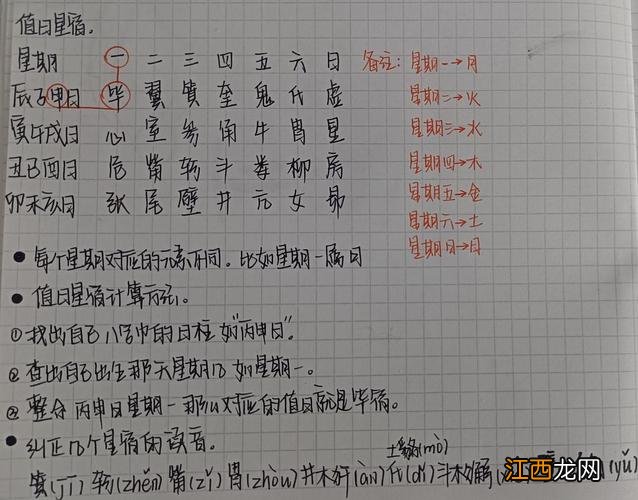 值日星宿。
星期 一 二 三 四 五 六 日 备注：星期一→月
辰子申日 毕 翼 箕 奎 鬼 氐 虚 星期二→火
寅午戌日 心 室 参 角 牛 胃 星 星期三→水
丑巳酉日 危 觜 轸 斗 娄 柳 房 星期四→木
卯未亥日 张 尾 壁 井 亢 女 昴 星期五→金
星期六→土
星期日→日
● 每个星期对应的元素不同。比如星期一属月
● 值日星宿计算方法。
①找出自己八字中的日柱 如“丙申日”。
②查出自己出生那天星期几 如星期一。
②整合 丙申日星期一 那么对应的值日就是毕宿。
● 纠正几个星宿的读音。
土貉(mò)
箕(jī) 轸(zhěn) 觜(zī) 胃(zhòu) 井木犴(àn) 氐(dǐ) 斗木獬
江西龙网